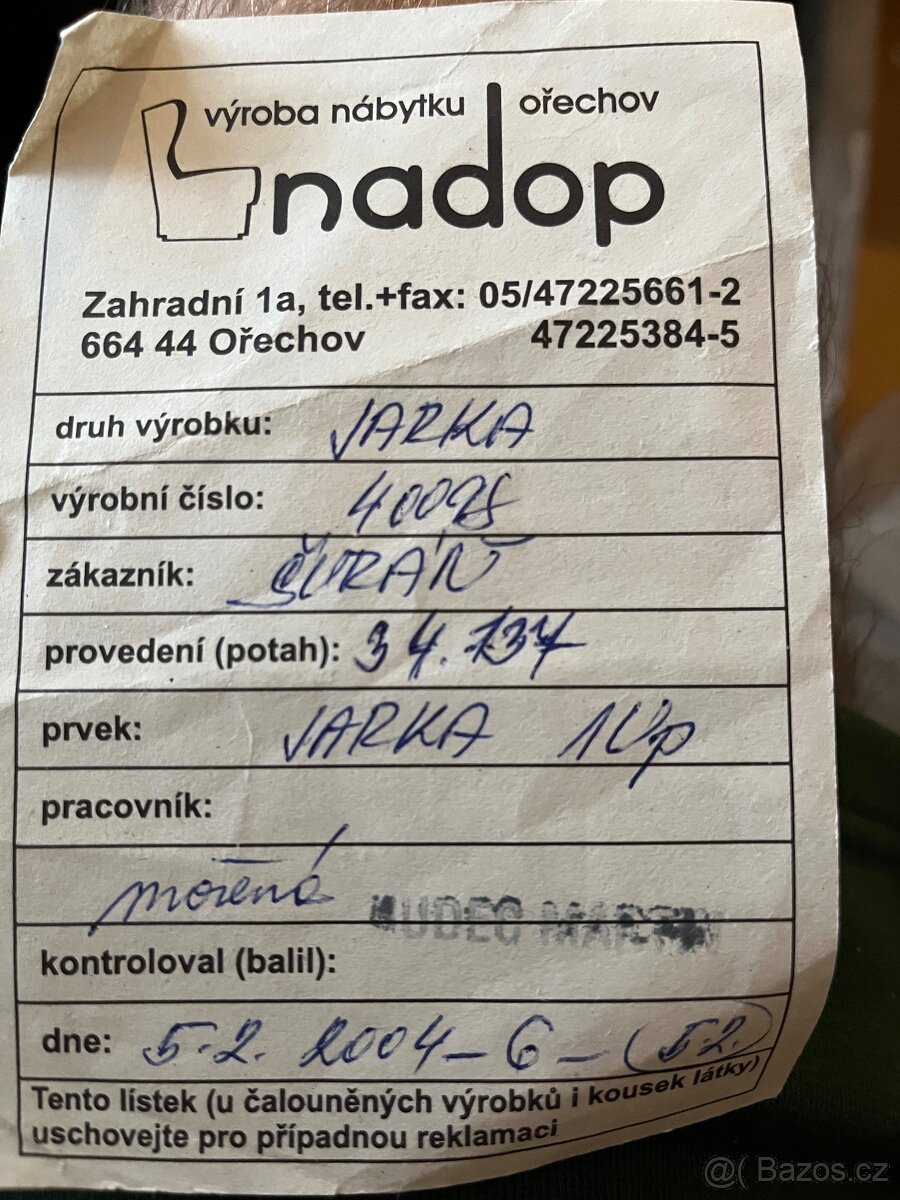 výroba nábytku ořechov
nadop
Zahradní 1a, tel.+fax: 05/47225661-2
664 44 Ořechov 47225384-5
druh výrobku: JARKA
výrobní číslo:
zákazník: ŠURÁŇ
provedení (potah): 34.137
prvek: JARKA 1Úp
pracovník:
mořená HUDEC MARTIN
kontroloval (balil):
dne: 5.2. 2004 – 6 – (5.2.)
Tento lístek (u čalouněných výrobků i kousek látky)
uschovejte pro případnou reklamaci
@( Bazos.cz